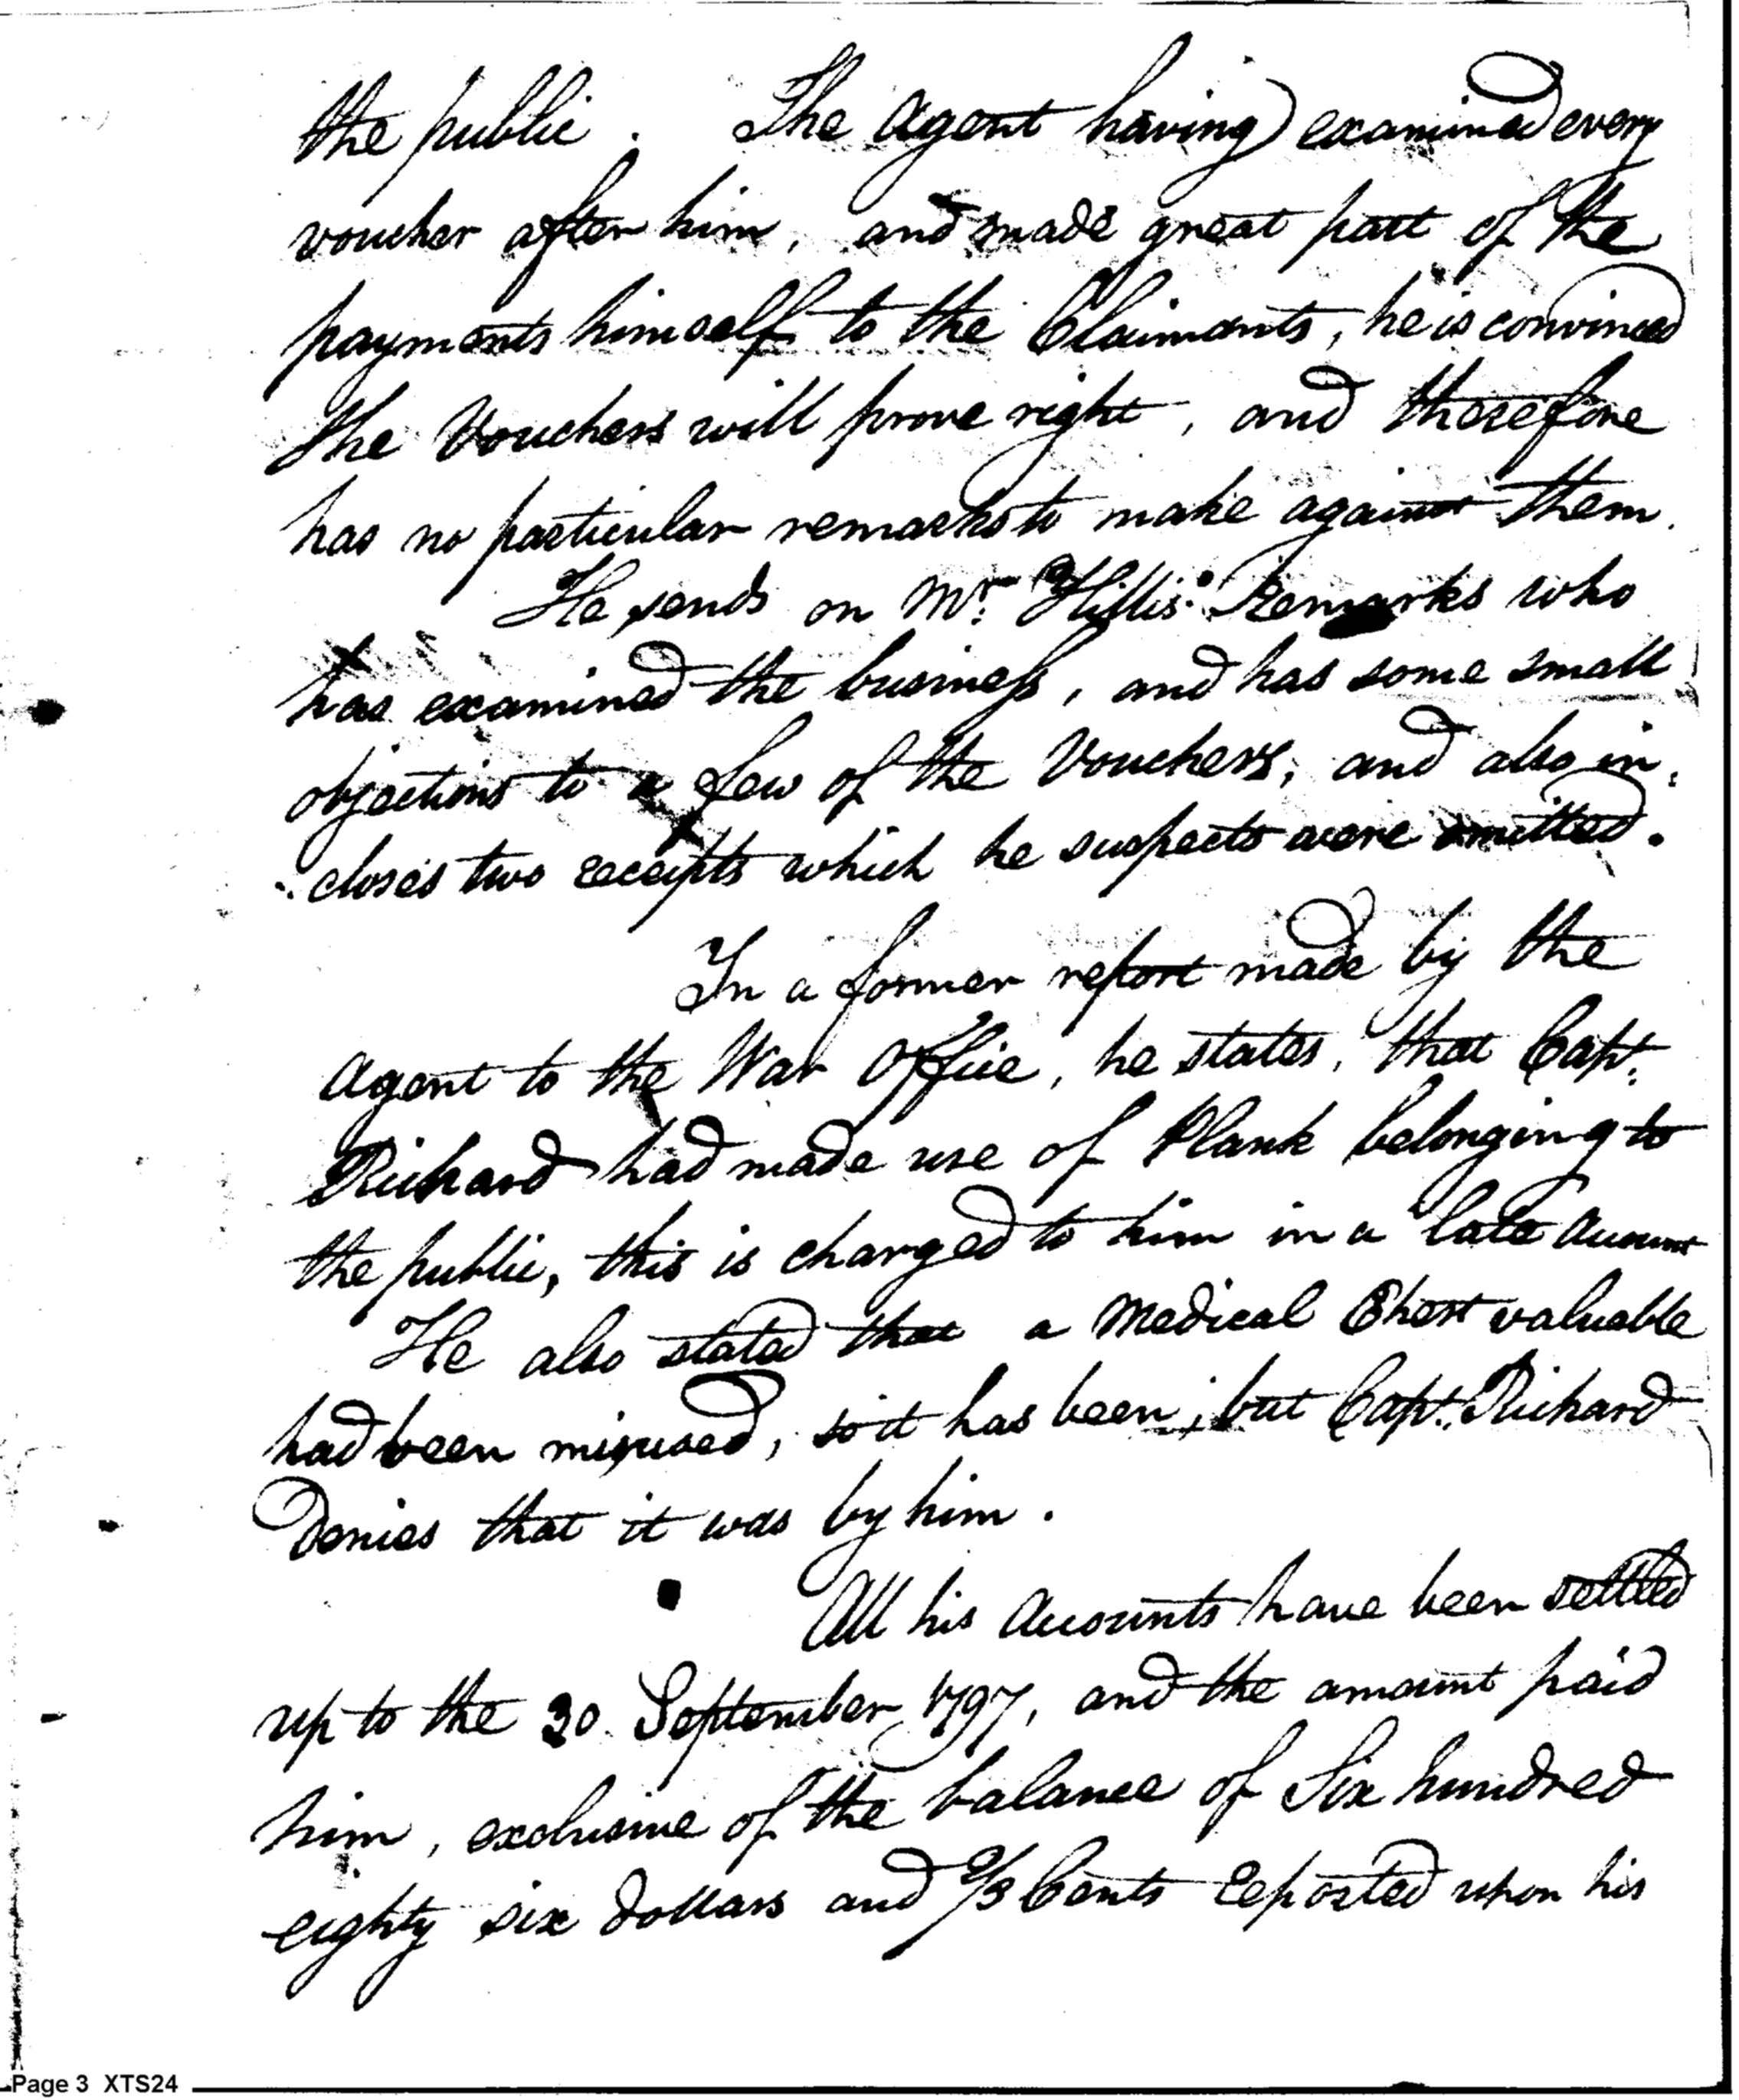 the public. The Agent having examined every
voucher after him, and made great part of the
payments himself to the Claimants, he is convinced
the Vouchers will prove right, and therefore
has no particular remarks to make against them.
He sends on Mr. Hillis' Remarks who
has examined the business, and has some small
objections to a few of the Vouchers, and also in,
closes two receipts which he suspects were omitted.
In a former report made by the
Agent to the War Office, he states, that Capt.
Richard had made use of Plank belonging to
the public, this is charged to him in a late Account
He also stated that a Medical Chest valuable
had been misused, so it has been, but Capt. Richard
Denies that it was by him.
All his Accounts have been settled
up to the 30 September 1797, and the amount paid
him, exclusive of the balance of Six hundred
eighty six dollars and 2/3 Cents reported upon his
Page 3 XTS24